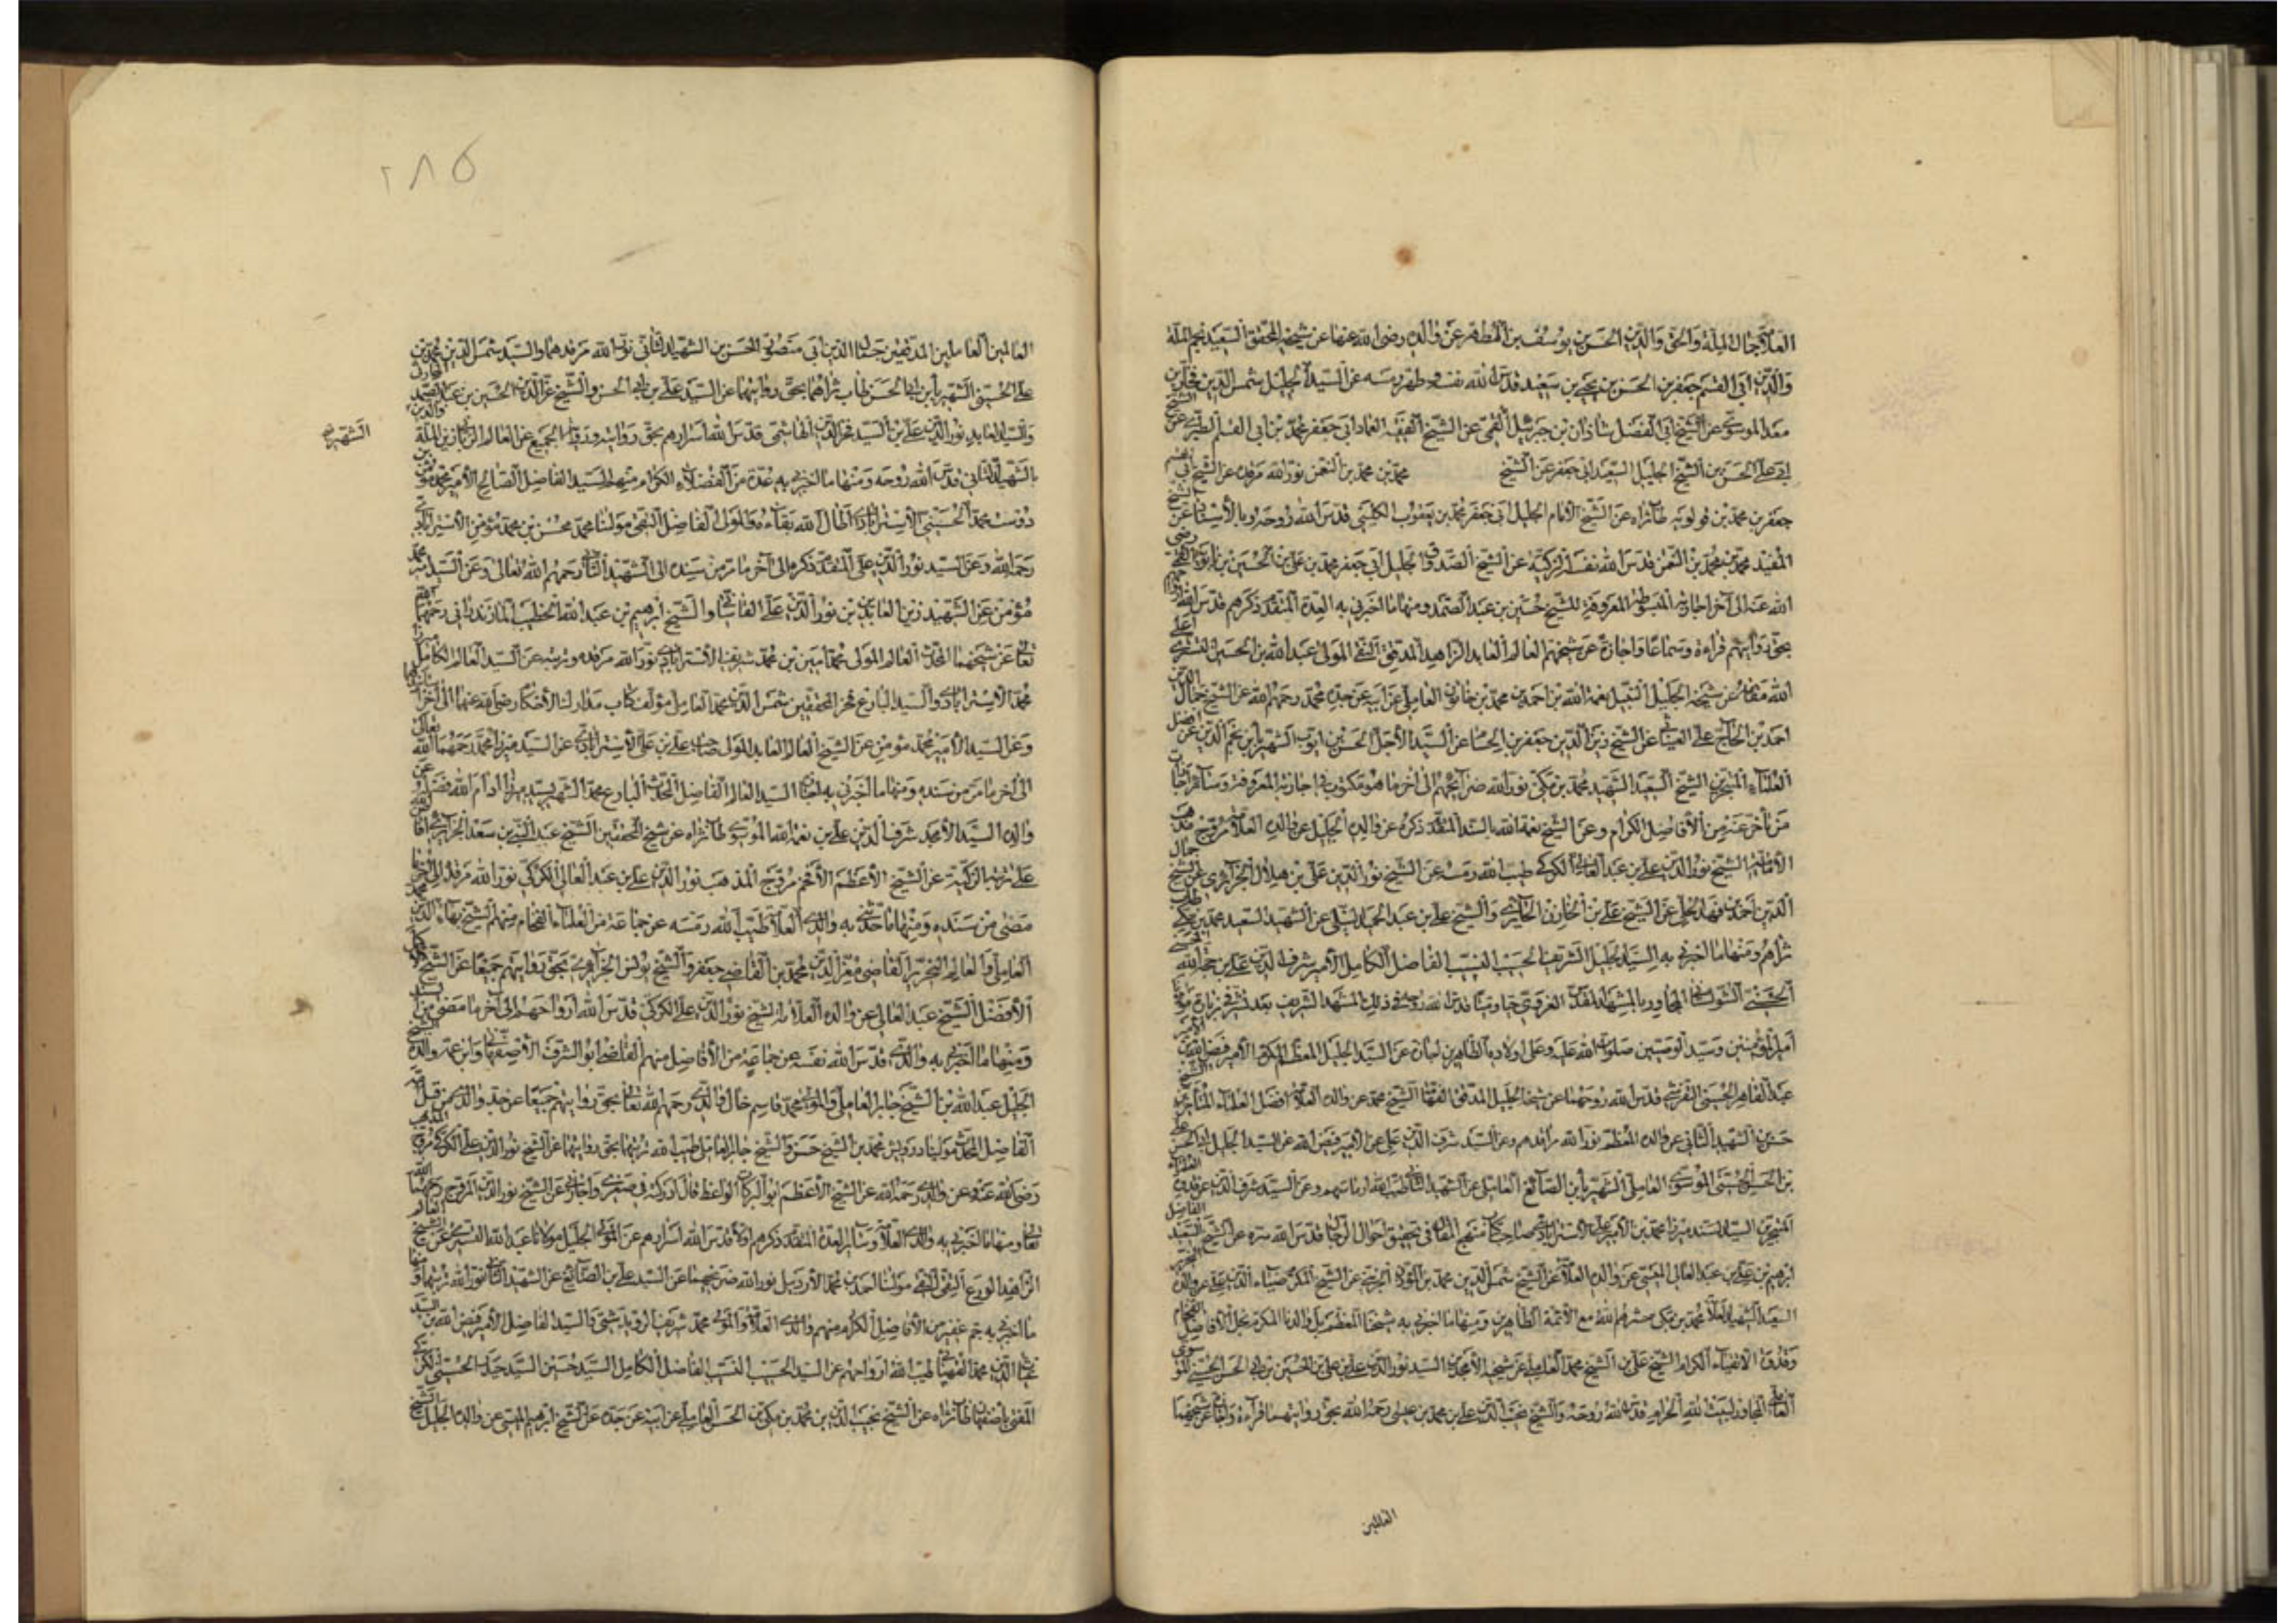 العلامة جمال الملة والحق والدين الحسن بن يوسف بن المطهر عن والده رضي الله عنهما عن شيخه المحقق السعيد نجم الملة
والدين ابي القسم جعفر بن الحسن بن يحيى بن سعيد قدس الله نفسه وطهر رمسه عن السيد الجليل شمس الدين فخار بن
معد الموسوي عن الشيخ ابي الفضل شاذان بن جبرئيل القمي عن الشيخ الفقيه العماد ابي جعفر محمد بن ابي القسم الطبري عن الشيخ
ابي علي الحسن بن الشيخ الجليل السعيد ابي جعفر عن الشيخ محمد بن محمد بن النعمن نور الله مرقده عن الشيخ ابي القسم
جعفر بن محمد بن قولويه طاب ثراه عن الشيخ الامام الجليل ابي جعفر محمد بن يعقوب الكليني قدس الله روحه وبالأسناد عن الشيخ
المفيد محمد بن محمد بن النعمن قدس الله نفسه الزكية عن الشيخ الصدوق الجليل ابي جعفر محمد بن علي بن الحسين بن بابويه القمي رضي
الله عنه الى آخر اجازته المبسوطة المعروفة للشيخ حسين بن عبد الصمد ومنها ما اخبرني به العدة المتقدم ذكرهم قدس الله
بحق روايتهم قراءة وسماعا واجازة عن شيخهم العالم العابد الزاهد المدقق التقي المولى عبد الله بن الحسين التستري اعلى
الله مقامه عن شيخه الجليل النبيل نعمة الله بن احمد بن محمد بن خاتون العاملي عن ابيه عن جده محمد رحمهم الله عن الشيخ جمال الدين
احمد بن الحاج علي العيناثي عن الشيخ زين الدين جعفر بن الحسام عن السيد الاجل الحسن بن ايوب الشهير بابن نجم الدين عن افضل
العلماء المتبحرين الشيخ السعيد الشهيد محمد بن مكي نور الله ضرائحهم الى آخر ما هو مكتوب في اجازته المعروفة وسائر اجازات
من تأخر عنه من الافاضل الكرام وعن الشيخ نعمة الله بالسند المتقدم ذكره عن والده الجليل عن والده العلامة مروج مذهب
الامامية الشيخ نور الدين علي بن عبد العالي الكركي طيب الله رمسه عن الشيخ نور الدين علي بن هلال الجزائري عن الشيخ جمال
الدين احمد بن فهد الحلي عن الشيخ علي بن الخازن الحائري والشيخ علي بن عبد الحميد النيلي عن الشهيد السعيد محمد بن مكي طاب
ثراهم ومنها ما اخبرني به السيد الجليل الشريف الحسيب النسيب الفاضل الكامل الامير شرف الدين علي بن حجة الله
الحسني الشولستاني المجاور بالمشهد المقدس الغروي حيا وميتا قدس الله روحه في ذلك المشهد الشريف بعد تشرفي بزيارة مولانا
امير المؤمنين وسيد الوصيين صلوات الله عليه وعلى اولاده الطاهرين اجازة عن السيد الجليل المعظم المكرم الامير فيض الله بن
عبد القاهر الحسيني التفرشي قدس الله روحهما عن شيخنا الجليل المدقق الفهامة الشيخ محمد عن والده العلامة افضل العلماء المتأخرين الشيخ
حسن بن الشهيد الثاني عن والده المعظم نور الله مراقدهم وعن السيد شرف الدين علي عن الامير فيض الله عن السيد الجليل ابي الحسن علي
بن الحسين الحسيني الموسوي العاملي الشهير بابن الصائغ العاملي عن الشهيد الثاني طيب الله ارماسهم وعن السيد شرف الدين عن قدوة الفضلاء
المتبحرين السيد السند ميرزا محمد بن الامير علي الاسترابادي صاحب كتاب منهج المقال في تحقيق احوال الرجال قدس الله سره عن الشيخ السعيد الفاضل
ابرهيم بن علي بن عبد العالي الميسي عن والده العلامة عن الشيخ شمس الدين محمد بن المؤذن الجزيني عن الشيخ المكرم ضياء الدين علي عن والده
السعيد الشهيد العلامة محمد بن مكي حشرهم الله مع الائمة الطاهرين ومنها ما اخبرني به شيخنا المعظم بل والدنا المكرم نجل الافاضل الفخام
وقدوة الاتقياء الكرام الشيخ علي بن الشيخ محمد العاملي عن شيخه الامجد السيد نور الدين علي بن علي بن الحسين بن ابي الحسن الحسيني الموسوي
العاملي المجاور لبيت الله الحرام قدس الله روحه والشيخ نجيب الدين علي بن محمد بن عيسى رحمه الله بحق روايتهما قراءة واجازة عن شيخيهما
العالمين
٢٨٥
العالمين العاملين المدققين جمال الدين ابي منصور الحسن بن الشهيد الثاني نور الله مرقدهما والسيد شمس الدين محمد بن
علي الحسيني الشهير بابن ابي الحسن طاب ثراهما بحق روايتهما عن السيد علي بن ابي الحسن والشيخ عز الدين الحسين بن عبد الصمد الحارثي
والسيد العابد نور الدين علي بن السيد فخر الدين الهاشمي قدس الله اسرارهم بحق روايته ورواية الجميع عن العالم الرباني زين الملة والدين
الشهير
بالشهيد الثاني قدس الله روحه ومنها ما اخبرني به عدة من الفضلاء الكرام منهم السيد الفاضل الصالح الامير محمد مؤمن بن
دوست محمد الحسيني الاسترابادي اطال الله بقاءه والمولى الفاضل التقي مولانا محمد محسن بن محمد مؤمن الاسترابادي
رحمه الله وعن السيد نور الدين علي المتقدم ذكره الى آخر ما مر من سنده الى الشهيد الثاني رحمهم الله تعالى وعن السيد محمد
مؤمن عن الشهيد زين العابدين بن نور الدين علي القاشاني والشيخ ابرهيم بن عبد الله الخطيب المازندراني رحمهما الله
تعالى عن شيخهما المحدث العالم المولى محمد امين بن محمد شريف الاسترابادي نور الله مرقده وتربته عن السيد العالم الكامل ميرزا
محمد الاسترابادي والسيد البارع فخر المحققين شمس الدين محمد العاملي مؤلف كتاب مدارك الأفكار رضي الله عنهما الى آخر اسانيدهما
وعن السيد الامير محمد مؤمن عن الشيخ العالم العابد المولى علي بن علي الاسترابادي عن السيد ميرزا محمد رحمهما الله تعالى
الى آخر ما مر من سنده ومنها ما اخبرني به السيد العالم الفاضل المحدث البارع محمد الشهير بسيد ميرزا ادام الله فضله عن
والده السيد الامجد شرف الدين علي بن نعمة الله الموسوي طاب ثراه عن شيخ المحققين الشيخ عبد النبي بن سعد الجزائري افاض الله
على تربته الزكية عن الشيخ الأعظم الأفخم مروج المذهب نور الدين علي بن عبد العالي الكركي نور الله مرقده الى آخر ما
مضى من سنده ومنها ما حدثني به والدي العلامة طيب الله رمسه عن جماعة من العلماء الفخام منهم الشيخ بهاء الدين محمد
العاملي والعالم النحرير القاضي معز الدين محمد بن القاضي جعفر والشيخ يونس الجزائري بحق روايتهم جميعا عن الشيخ الأكمل
الأفضل الشيخ عبد العالي عن والده العلامة الشيخ نور الدين علي الكركي قدس الله ارواحهم الى آخر ما مضى من
ومنها ما اخبرني به والدي قدس الله نفسه عن جماعة من الأفاضل منهم القاضي ابو الشرف الأصفهاني وابن عمة والده الشيخ
الجليل عبد الله بن الشيخ جابر العاملي والمولى محمد قاسم خال والدي رحمهم الله تعالى بحق روايتهم جميعا عن جد والدي من قبل امه
الفاضل المحدث مولينا درويش محمد بن الشيخ حسن والشيخ جابر العاملي طيب الله تربتهما بحق روايتهما عن الشيخ نور الدين علي الكركي مروج المذهب
رضي الله عنه وعن والدي رحمه الله عن الشيخ الأعظم ابو البركات الواعظ قال ادركته في صغري واجازني عن الشيخ نور الدين المروج رحمهما الله
تعالى ومنها ما اخبرني به والدي العلامة وسائر العدة المتقدم ذكرهم اولا قدس الله اسرارهم عن المولى الجليل مولانا عبد الله التستري عن الشيخ العالم
الزاهد الورع التقي مولينا احمد بن محمد الأردبيلي نور الله ضريحهما عن السيد علي بن الصائغ عن الشهيد الثاني نور الله تربتهما ومنها
ما اخبرني به جم غفير من الأفاضل الكرام منهم والدي العلامة والمولى محمد شريف الرويدشتي والسيد الفاضل الامير فيض الله بن السيد
غياث الدين محمد القهپائي طيب الله ارواحهم عن السيد الحسيب النسيب الفاضل الكامل السيد حسين بن السيد حيدر الحسيني الكركي
المفتي باصفهان طاب ثراه عن الشيخ نجيب الدين بن محمد بن مكي بن الحسن العاملي عن ابيه عن جده عن الشيخ ابرهيم الميسي عن والده الجليل الشيخ